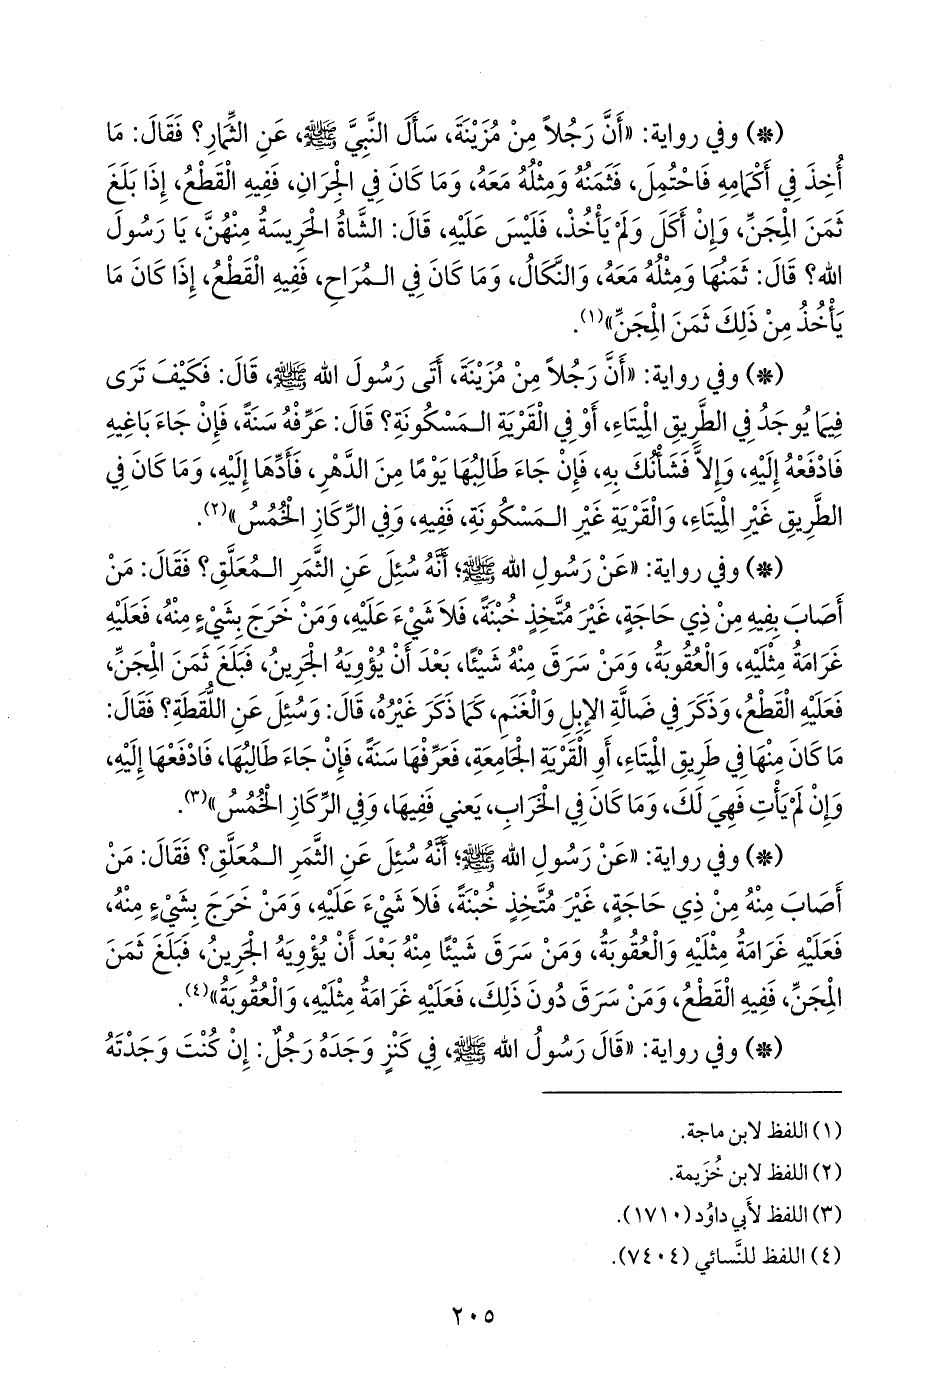 (*) وفي رواية: «أَنَّ رَجُلاً مِنْ مُزَيْنَةَ، سَأَلَ النَّبِيَّ ﷺ، عَنِ الثِّمَارِ؟ فَقَالَ: مَا
أُخِذَ فِي أَكْمَامِهِ فَاحْتُمِلَ، فَثَمَنُهُ وَمِثْلُهُ مَعَهُ، وَمَا كَانَ فِي الْجِرَانِ، فَفِيهِ الْقَطْعُ، إِذَا بَلَغَ
ثَمَنَ الْمِجَنِّ، وَإِنْ أَكَلَ وَلَمْ يَأْخُذْ، فَلَيْسَ عَلَيْهِ، قَالَ: الشَّاةُ الْحَرِيسَةُ مِنْهُنَّ، يَا رَسُولَ
الله؟ قَالَ: ثَمَنُهَا وَمِثْلُهُ مَعَهُ، وَالنَّكَالُ، وَمَا كَانَ فِي الـمُرَاحِ، فَفِيهِ الْقَطْعُ، إِذَا كَانَ مَا
يَأْخُذُ مِنْ ذَلِكَ ثَمَنَ الْمِجَنِّ»(١).
(*) وفي رواية: «أَنَّ رَجُلاً مِنْ مُزَيْنَةَ، أَتَى رَسُولَ الله ﷺ، قَالَ: فَكَيْفَ تَرَى
فِيمَا يُوجَدُ فِي الطَّرِيقِ الْمِيتَاءِ، أَوْ فِي الْقَرْيَةِ الـمَسْكُونَةِ؟ قَالَ: عَرِّفْهُ سَنَةً، فَإِنْ جَاءَ بَاغِيهِ
فَادْفَعْهُ إِلَيْهِ، وَإِلاَّ فَشَأْنُكَ بِهِ، فَإِنْ جَاءَ طَالِبُهَا يَوْمًا مِنَ الدَّهْرِ، فَأَدِّهَا إِلَيْهِ، وَمَا كَانَ فِي
الطَّرِيقِ غَيْرِ الْمِيتَاءِ، وَالْقَرْيَةِ غَيْرِ الـمَسْكُونَةِ، فَفِيهِ، وَفِي الرِّكَازِ الْخُمُسُ»(٢).
(*) وفي رواية: «عَنْ رَسُولِ الله ﷺ؛ أَنَّهُ سُئِلَ عَنِ الثَّمَرِ الـمُعَلَّقِ؟ فَقَالَ: مَنْ
أَصَابَ بِفِيهِ مِنْ ذِي حَاجَةٍ، غَيْرَ مُتَّخِذٍ خُبْنَةً، فَلاَ شَيْءَ عَلَيْهِ، وَمَنْ خَرَجَ بِشَيْءٍ مِنْهُ، فَعَلَيْهِ
غَرَامَةُ مِثْلَيْهِ، وَالْعُقُوبَةُ، وَمَنْ سَرَقَ مِنْهُ شَيْئًا، بَعْدَ أَنْ يُؤْوِيَهُ الْجَرِينُ، فَبَلَغَ ثَمَنَ الْمِجَنِّ،
فَعَلَيْهِ الْقَطْعُ، وَذَكَرَ فِي ضَالَّةِ الإِبِلِ وَالْغَنَمِ، كَمَا ذَكَرَ غَيْرُهُ، قَالَ: وَسُئِلَ عَنِ اللُّقَطَةِ؟ فَقَالَ:
مَا كَانَ مِنْهَا فِي طَرِيقِ الْمِيتَاءِ، أَوِ الْقَرْيَةِ الْجَامِعَةِ، فَعَرِّفْهَا سَنَةً، فَإِنْ جَاءَ طَالِبُهَا، فَادْفَعْهَا إِلَيْهِ،
وَإِنْ لَمْ يَأْتِ فَهِيَ لَكَ، وَمَا كَانَ فِي الْخَرَابِ، يَعني فَفِيهَا، وَفِي الرِّكَازِ الْخُمُسُ»(٣).
(*) وفي رواية: «عَنْ رَسُولِ الله ﷺ؛ أَنَّهُ سُئِلَ عَنِ الثَّمَرِ الـمُعَلَّقِ؟ فَقَالَ: مَنْ
أَصَابَ مِنْهُ مِنْ ذِي حَاجَةٍ، غَيْرَ مُتَّخِذٍ خُبْنَةً، فَلاَ شَيْءَ عَلَيْهِ، وَمَنْ خَرَجَ بِشَيْءٍ مِنْهُ،
فَعَلَيْهِ غَرَامَةُ مِثْلَيْهِ وَالْعُقُوبَةُ، وَمَنْ سَرَقَ شَيْئًا مِنْهُ بَعْدَ أَنْ يُؤْوِيَهُ الْجَرِينُ، فَبَلَغَ ثَمَنَ
الْمِجَنِّ، فَفِيهِ الْقَطْعُ، وَمَنْ سَرَقَ دُونَ ذَلِكَ، فَعَلَيْهِ غَرَامَةُ مِثْلَيْهِ، وَالْعُقُوبَةُ»(٤).
(*) وفي رواية: «قَالَ رَسُولُ الله ﷺ، فِي كَنْزٍ وَجَدَهُ رَجُلٌ: إِنْ كُنْتَ وَجَدْتَهُ
(١) اللفظ لابن ماجة.
(٢) اللفظ لابن خُزَيمة.
(٣) اللفظ لأَبي داوُد (١٧١٠).
(٤) اللفظ للنَّسائي (٧٤٠٤).
٢٠٥